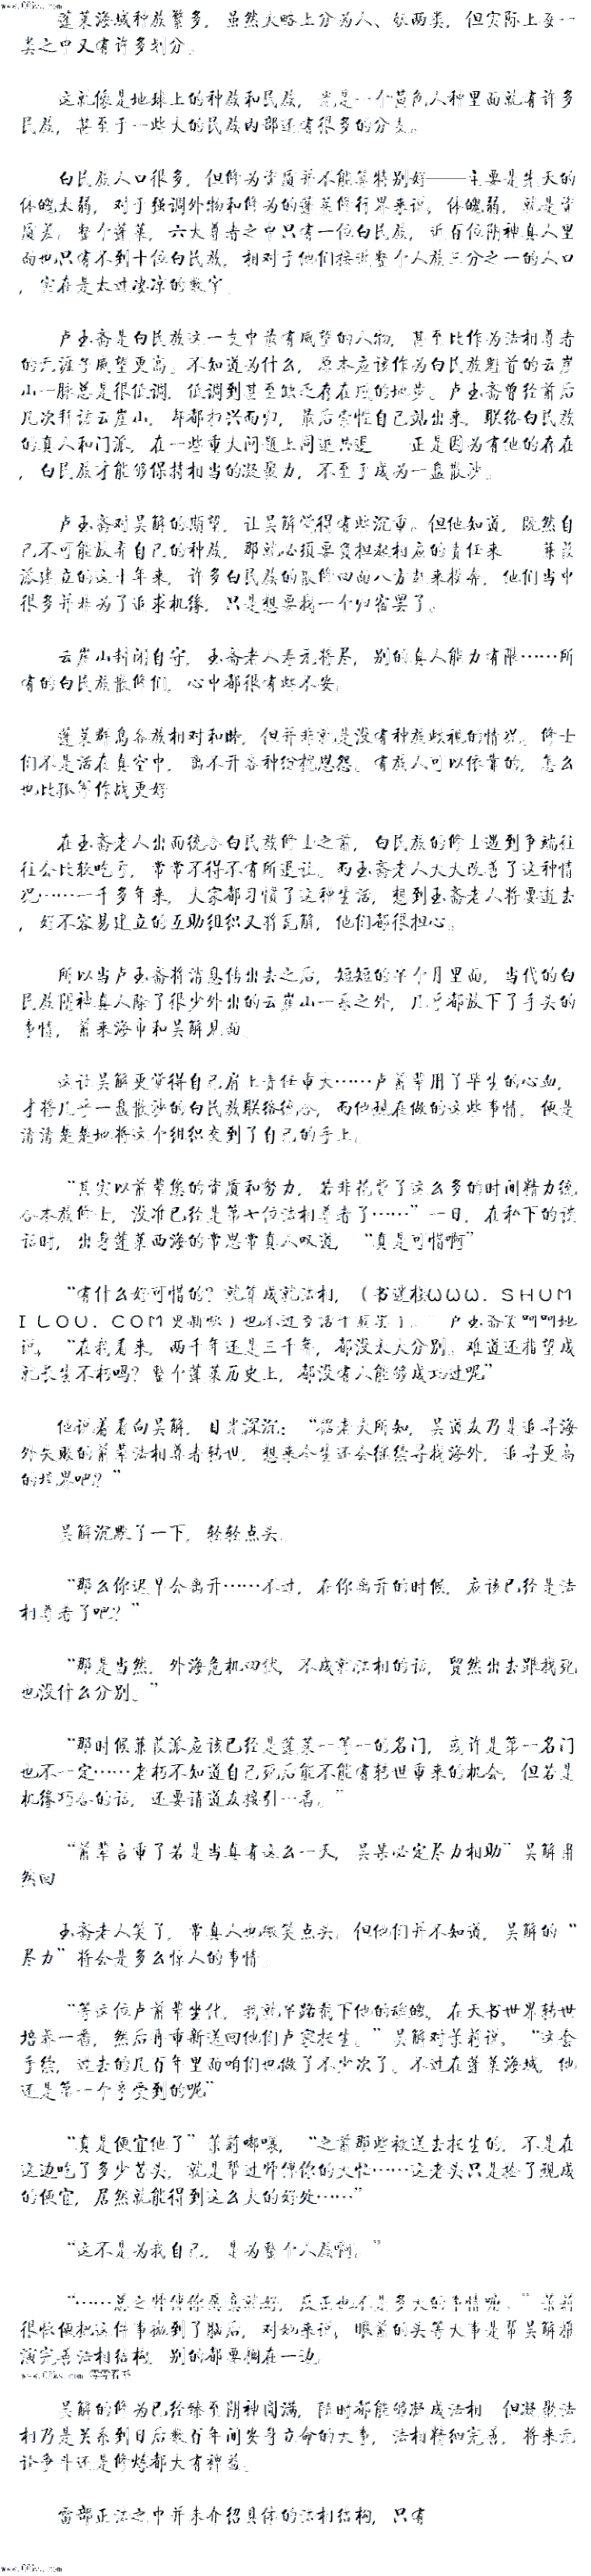 www.66ks.com
蓬莱海域种族繁多，虽然大略上分为人、妖两类，但实际上每一
类之中又有许多划分。
这就像是地球上的种族和民族，光是一个黄色人种里面就有许多
民族，甚至于一些大的民族内部还有很多的分支。
白民族人口很多，但修为资质并不能算特别好——主要是先天的
体魄太弱，对于强调外物和修为的蓬莱修行界来说，体魄弱，就是资
质差，整个蓬莱，六大尊者之中只有一位白民族，近百位阴神真人里
面也只有不到十位白民族，相对于他们接近整个人族三分之一的人口
，实在是太过凄凉的数字。
卢玉斋是白民族这一支中最有威望的人物，甚至比作为法相尊者
的无涯子威望更高。不知道为什么，原本应该作为白民族魁首的云崖
山一脉总是很低调，低调到甚至缺乏存在感的地步。卢玉斋曾经前后
几次拜访云崖山，却都扫兴而归，最后索性自己站出来，联络白民族
的真人和门派，在一些重大问题上同进共退 正是因为有他的存在
，白民族才能够保持相当的凝聚力，不至于成为一盘散沙。
卢玉斋对吴解的期望，让吴解觉得有些沉重。但他知道，既然自
己不可能放弃自己的种族，那就必须要负担起相应的责任来 蒹葭
派建立的这十年来，许多白民族的散修四面八方赶来投奔，他们当中
很多并非为了追求机缘，只是想要找一个归宿罢了。
云崖山封闭自守，玉斋老人寿元将尽，别的真人能力有限……所
有的白民族散修们，心中都很有些不安。
蓬莱群岛各族相对和睦，但并非就是没有种族歧视的情况。修士
们不是活在真空中，离不开各种纷扰恩怨。有族人可以依靠的，怎么
也比孤军作战更好
在玉斋老人出面统合白民族修士之前，白民族的修士遇到争端往
往会比较吃亏，常常不得不有所退让。而玉斋老人大大改善了这种情
况……一千多年来，大家都习惯了这种生活，想到玉斋老人将要逝去
，好不容易建立的互助组织又将瓦解，他们都很担心。
所以当卢玉斋将消息传出去之后，短短的半个月里面，当代的白
民族阴神真人除了很少外出的云崖山一系之外，几乎都放下了手头的
事情，前来海市和吴解见面
这让吴解更觉得自己肩上责任重大……卢前辈用了毕生的心血，
才将几乎一盘散沙的白民族联络统合，而他现在做的这些事情，便是
清清楚楚地将这个组织交到了自己的手上。
“其实以前辈您的资质和努力，若非花费了这么多的时间精力统
合本族修士，没准已经是第七位法相尊者了……”一日，在私下的谈
话时，出身蓬莱西海的常思常真人叹道，“真是可惜啊”
“有什么好可惜的？就算成就法相，（书迷楼WWW．SHUM
ILOU．COM更新快）也不过多活千载罢了。”卢玉斋笑呵呵地
说，“在我看来，两千年还是三千年，都没太大分别。难道还指望成
就长生不朽吗？整个蓬莱历史上，都没有人能够成功过呢”
他说着看向吴解，目光深沉：“据老夫所知，吴道友乃是追寻海
外失败的前辈法相尊者转世，想来今生还会继续寻找海外，追寻更高
的境界吧？”
吴解沉默了一下，轻轻点头。
“那么你迟早会离开……不过，在你离开的时候，应该已经是法
相尊者了吧？”
“那是当然，外海危机四伏，不成就法相的话，贸然出去跟找死
也没什么分别。”
“那时候蒹葭派应该已经是蓬莱一等一的名门，或许是第一名门
也不一定……老朽不知道自己死后能不能有转世重来的机会，但若是
机缘巧合的话，还要请道友接引一番。”
“前辈言重了若是当真有这么一天，吴某必定尽力相助”吴解肃
然回
玉斋老人笑了，常真人也微笑点头，但他们并不知道，吴解的“
尽力”将会是多么惊人的事情。
“等这位卢前辈坐化，我就半路截下他的魂魄，在天书世界转世
培养一番，然后再重新送回他们卢家托生。”吴解对茉莉说，“这套
手续，过去的几百年里面咱们也做了不少次了。不过在蓬莱海域，他
还是第一个享受到的呢”
“真是便宜他了”茉莉嘟囔，“之前那些被送去托生的，不是在
这边吃了多少苦头，就是帮过师傅你的大忙……这老头只是捡了现成
的便宜，居然就能得到这么大的好处……”
“这不是为我自己，是为整个人族啊。”
“……总之师傅你愿意就好，反正也不是多大的事情呢。”茉莉
很快便把这件事抛到了脑后，对她来说，眼前的头等大事是帮吴解推
演完善法相结构，别的都要搁在一边
吴解的修为已经臻至阴神圆满，随时都能够凝成法相，但凝聚法
相乃是关系到日后数百年间安身立命的大事，法相精细完善，将来无
论争斗还是修炼都大有裨益。
雷部正法之中并未介绍具体的法相结构，只有